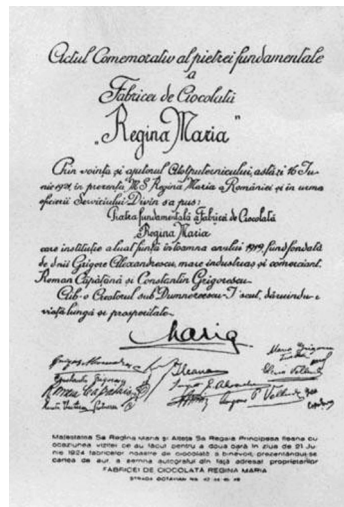 Actul Comemorativ al pietrei fundamentale
a
Fabricei de Ciocolată
„Regina Maria"
Prin voința și ajutorul Atotputernicului, astăzi 16 Iu-
nie 1921, în prezența M.S. Regină Maria a României și în urma
oficierii Serviciului Divin s'a pus:
Piatra fundamentală a Fabricei de Ciocolată
Regina Maria
care instituție a luat ființă în toamna anului 1919, fiind fondată
de d-nii Grigore Alexandrescu, mare industriaș și comerciant,
Roman Căpățână și Constantin Grigorescu
Aib-o Creatorul sub Dumnezeescu-I scut, dăruindu-i
viață lungă și prosperitate.
Maria
Ileana
Majestatea Sa Regina Maria și Alteța Sa Regală Principesa Ileana cu
ocaziunea vizitei ce au făcut pentru a doua oară în ziua de 21 Iu-
nie 1924 fabricelor noastre de ciocolată a binevoit, prezentându-se
cartea de aur, a semna autograful din față adresat proprietarilor
FABRICEI DE CIOCOLATĂ REGINA MARIA
STRADA OCTAVIAN No.